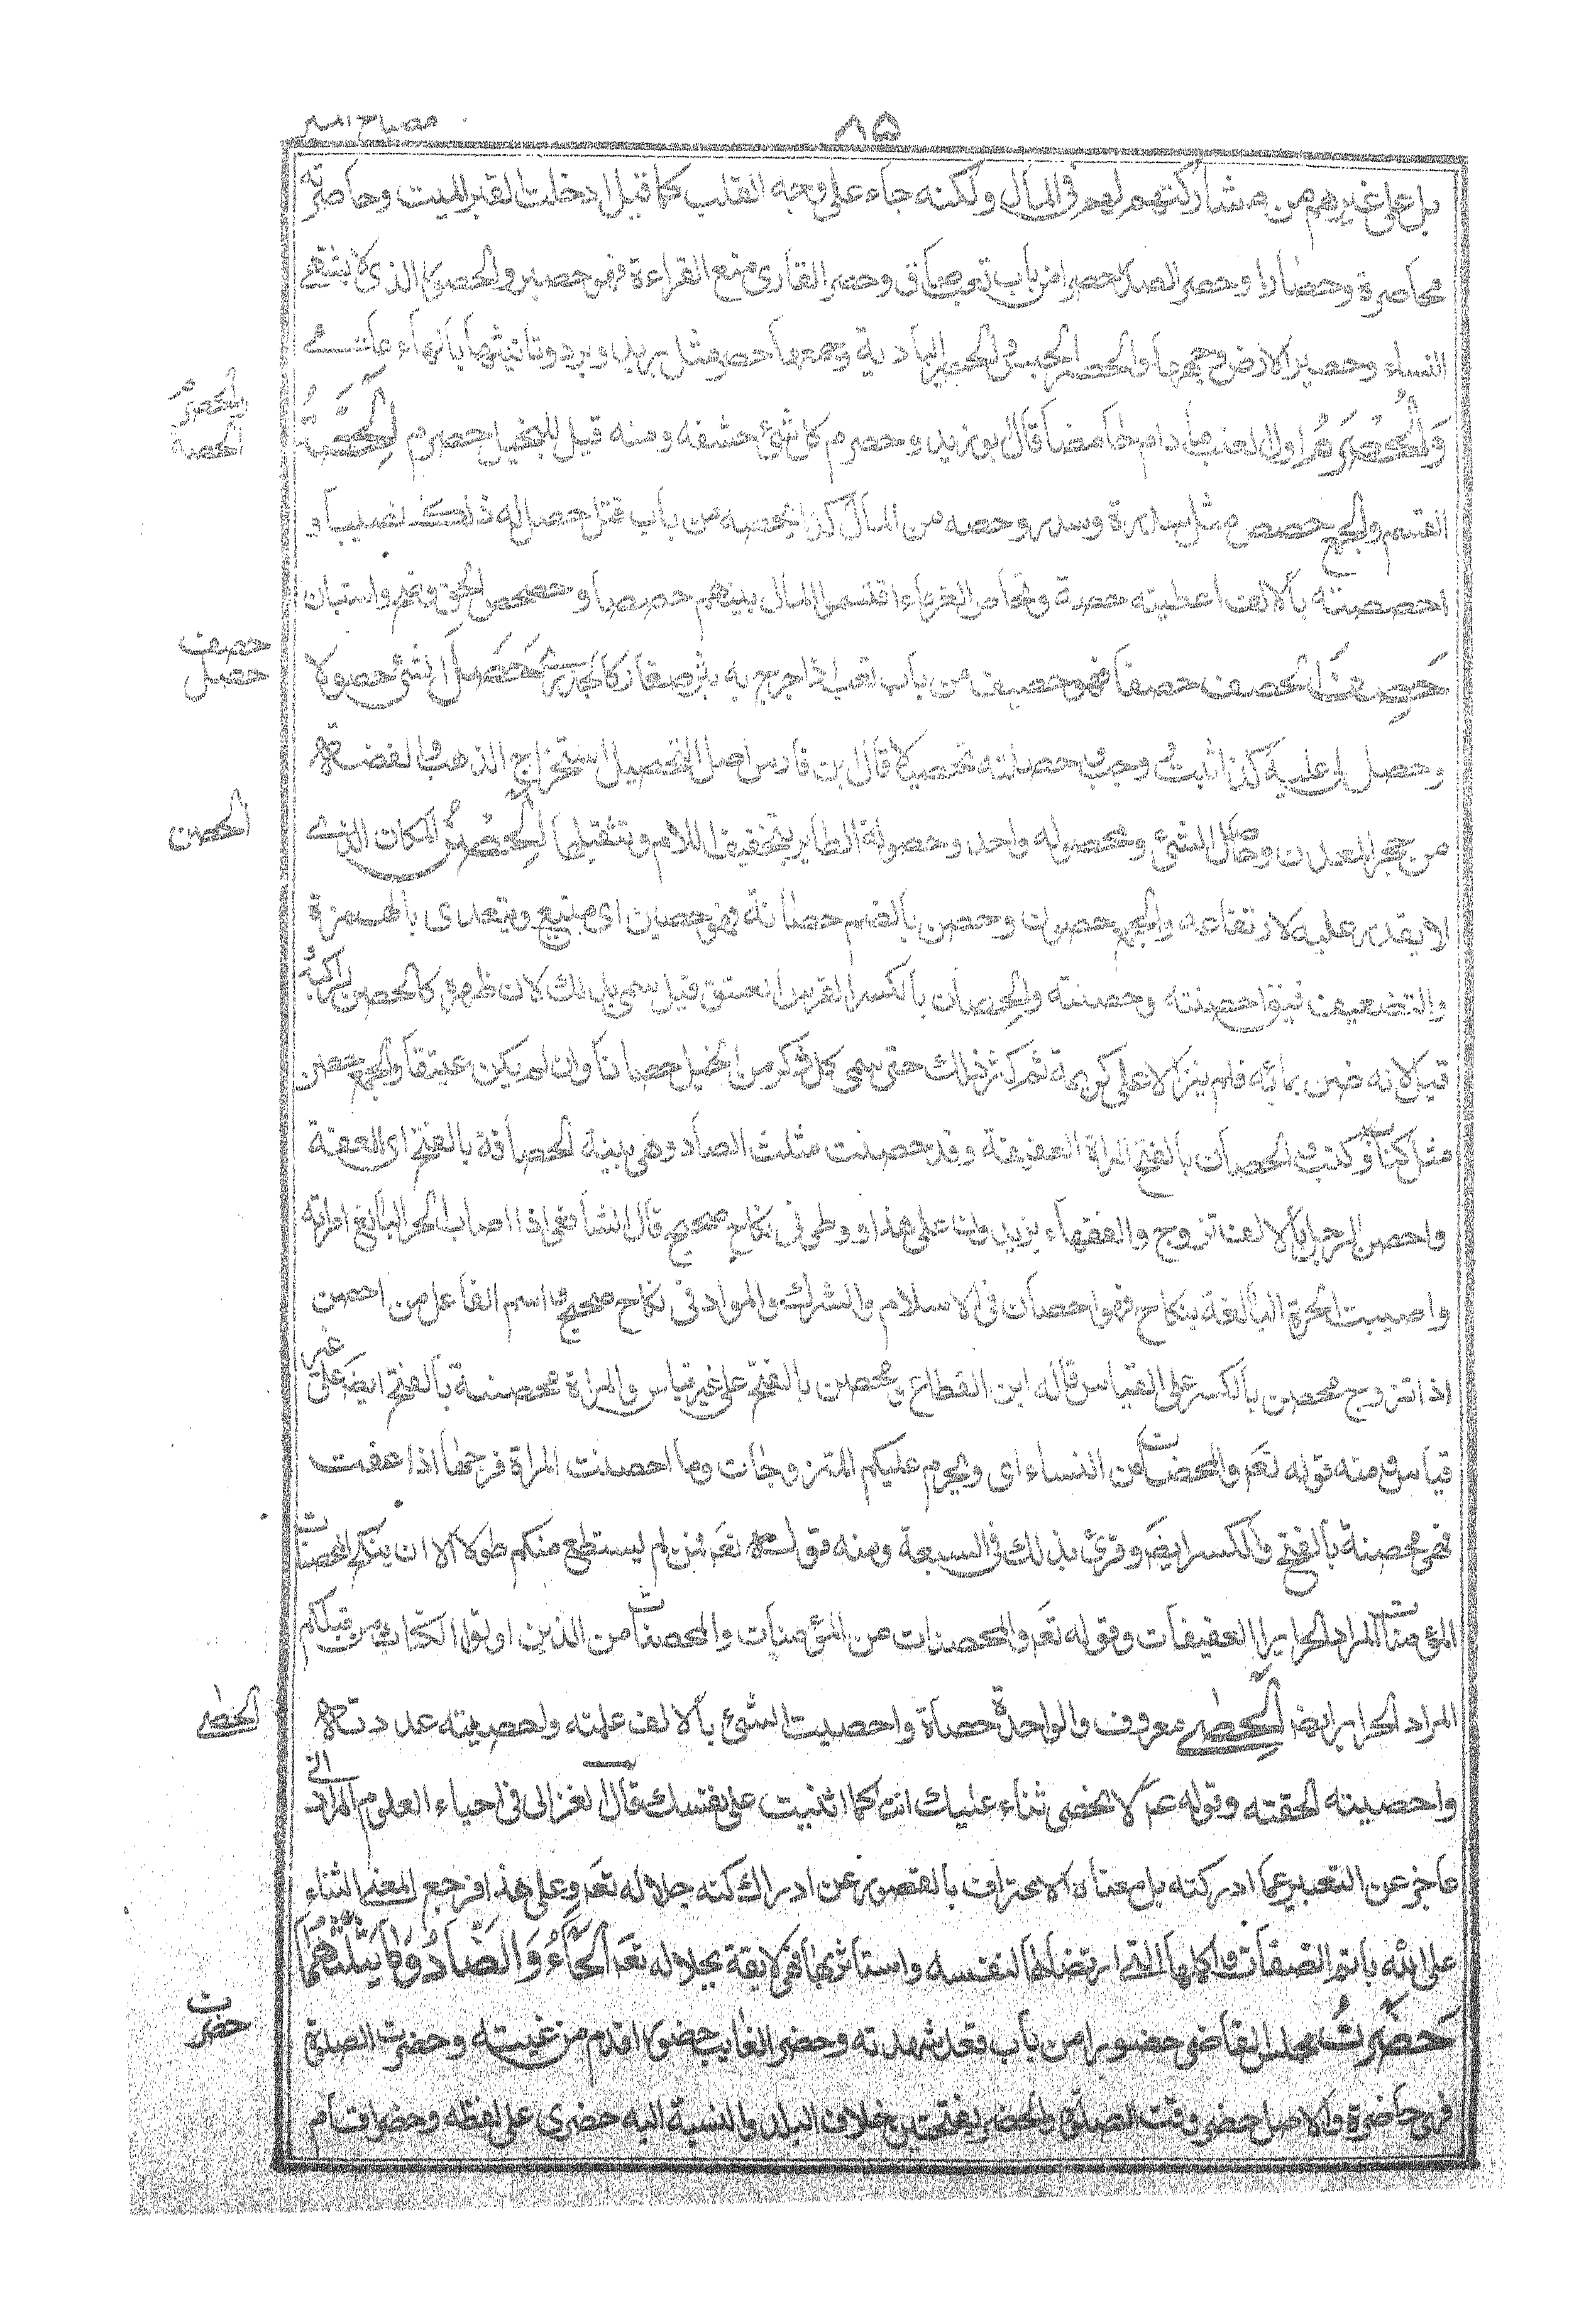 مصباح المنير
٨٥
بل على غيرهم من مشاركتهم لهم فى المال ولكنه جاء على وجه القلب كما قيل ادخلت القبر الميت وحاصرته
محاصرة وحصارا وحصر الصدر حصرا من باب تعب ضاق وحصر القارى منع القراءة فهو حصير والحصور الذى لا يشتهى
النساء وحصير الارض وجهها والحصير الحبس والحصير البادية وجمعها حصر مثل بريد وبرد وتانيثها بالهاء عامى
والحصرم
الحصة
وَالْحِصْرِمُ اول العنب ما دام حامضا قال ابو زيد وحصرم كل شئ حشفه ومنه قيل للبخيل حصرم الْحِصَّةُ
القسم والجمع حصص مثل سدرة وسدر وحصه من المال كذا يحصه من باب قتل حصل له ذلك نصيبا و
احصصته بالالف اعطيته حصة وتحاص الغرماء اقتسموا المال بينهم حصصا وحصحص الحق وضح واستبان
حصف
حصل
حَصِفَ الحصف حصفا فهو حصيف من باب تعب اذا خرج به بثر صغار كالجدرى حَصَلَ الشئ حصولا
وحصل لى عليه كذا ثبت ووجب وحصلته تحصيلا قال ابن فارس اصل التحصيل استخراج الذهب والفضة
الحصن
من حجر المعدن وحاصل الشئ ومحصوله واحد وحوصلة الطاير بتخفيف اللام وتثقيلها الْحِصْنُ المكان الذى
لا يقدر عليه لارتفاعه والجمع حصون وحصن بالضم حصانة فهو حصين اى منيع ويتعدى بالهمزة
والتضعيف فيقا احصنته وحصنته والحصان بالكسر الفرس العتيق قيل سمى بذلك لان ظهره كالحصن لراكبه
قيل لانه ضن بمائه فلم ينز الا على كريمة ثم كثر ذلك حتى سمى كل ذكر من الخيل حصانا وان لم يكن عتيقا والجمع حصن
مثل كتاب وكتب والحصان بالفتح المراة العفيفة وقد حصنت مثلث الصاد وهى بينة الحصانة بالفتح اى العفة
واحصن الرجل بالالف تزوج والفقهاء يزيدون على هذا ووطى فى نكاح صحيح قال الشافعى اذا اصاب الحر البالغ امراته
واصيبت الحرة البالغة بنكاح فهو احصان فى الاسلام والشرك والمراد فى نكاح صحيح واسم الفاعل من احصن
اذا تزوج محصن بالكسر على القياس قاله ابن القطاع ومحصن بالفتح على غير قياس والمراة محصنة بالفتح ايضا على غير
قياس ومنه قوله تعَ والمحصنات من النساء اى ويحرم عليكم المتزوجات وما احصنت المراة فرجها اذا عفت
فهى محصنة بالفتح والكسر ايضَ وقرئ بذلك فى السبعة ومنه قوله تعَ فمن لم يستطع منكم طولا الا ان ينكح المحصنات
المؤمنات المراد الحراير العفيفات وقوله تعَ والمحصنات من المؤمنات والمحصنات من الذين اوتوا الكتاب من قبلكم
الحصى
المراد الحراير ايضا الْحَصٰى معروف والواحدة حصاة واحصيت الشئ بالالف علمته واحصيته عددته
واحصيته اطقته وقوله عم لا احصى ثناء عليك انت كما اثنيت على نفسك قال الغزالى فى احياء العلوم المراد انى
عاجز عن التعبير عما ادركته بل معناه الاعتراف بالقصور عن ادراك كنه جلاله تعَ وعلى هذا فرجع المعنى الثناء
على الله باتم الصفات واكملها التى ارتضاها لنفسه واستاثر بها فهى لايقة بجلاله تعَ الْحَاءُ وَالضَّادُ وَمَا يَثْلُثُهُمَا
حضرت
حَضَرْتُ مجلس القاضى حضورا من باب قعد شهدته وحضر الغايب حضورا قدم من غيبته وحضرت الصلوة
فهى حاضرة والاصل حضر وقت الصلوة والحضر بفتحتين خلاف البدو والنسبة اليه حضرى على لفظه وحضر اقام